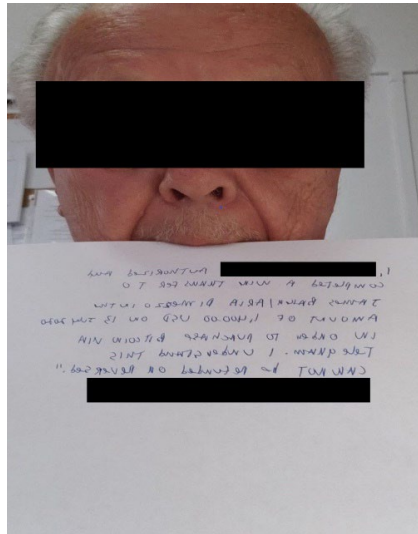 I, AUTHORIZED AND
COMPLETED A TRANSFER TO
BANK/ARIA DIMEZZO IN THE
AMOUNT OF 1,400.00 USD ON 13 JULY 2020
IN ORDER TO PURCHASE BITCOIN VIA
Telegram. I understand THIS
CAN NOT be refunded OR REVERSED."